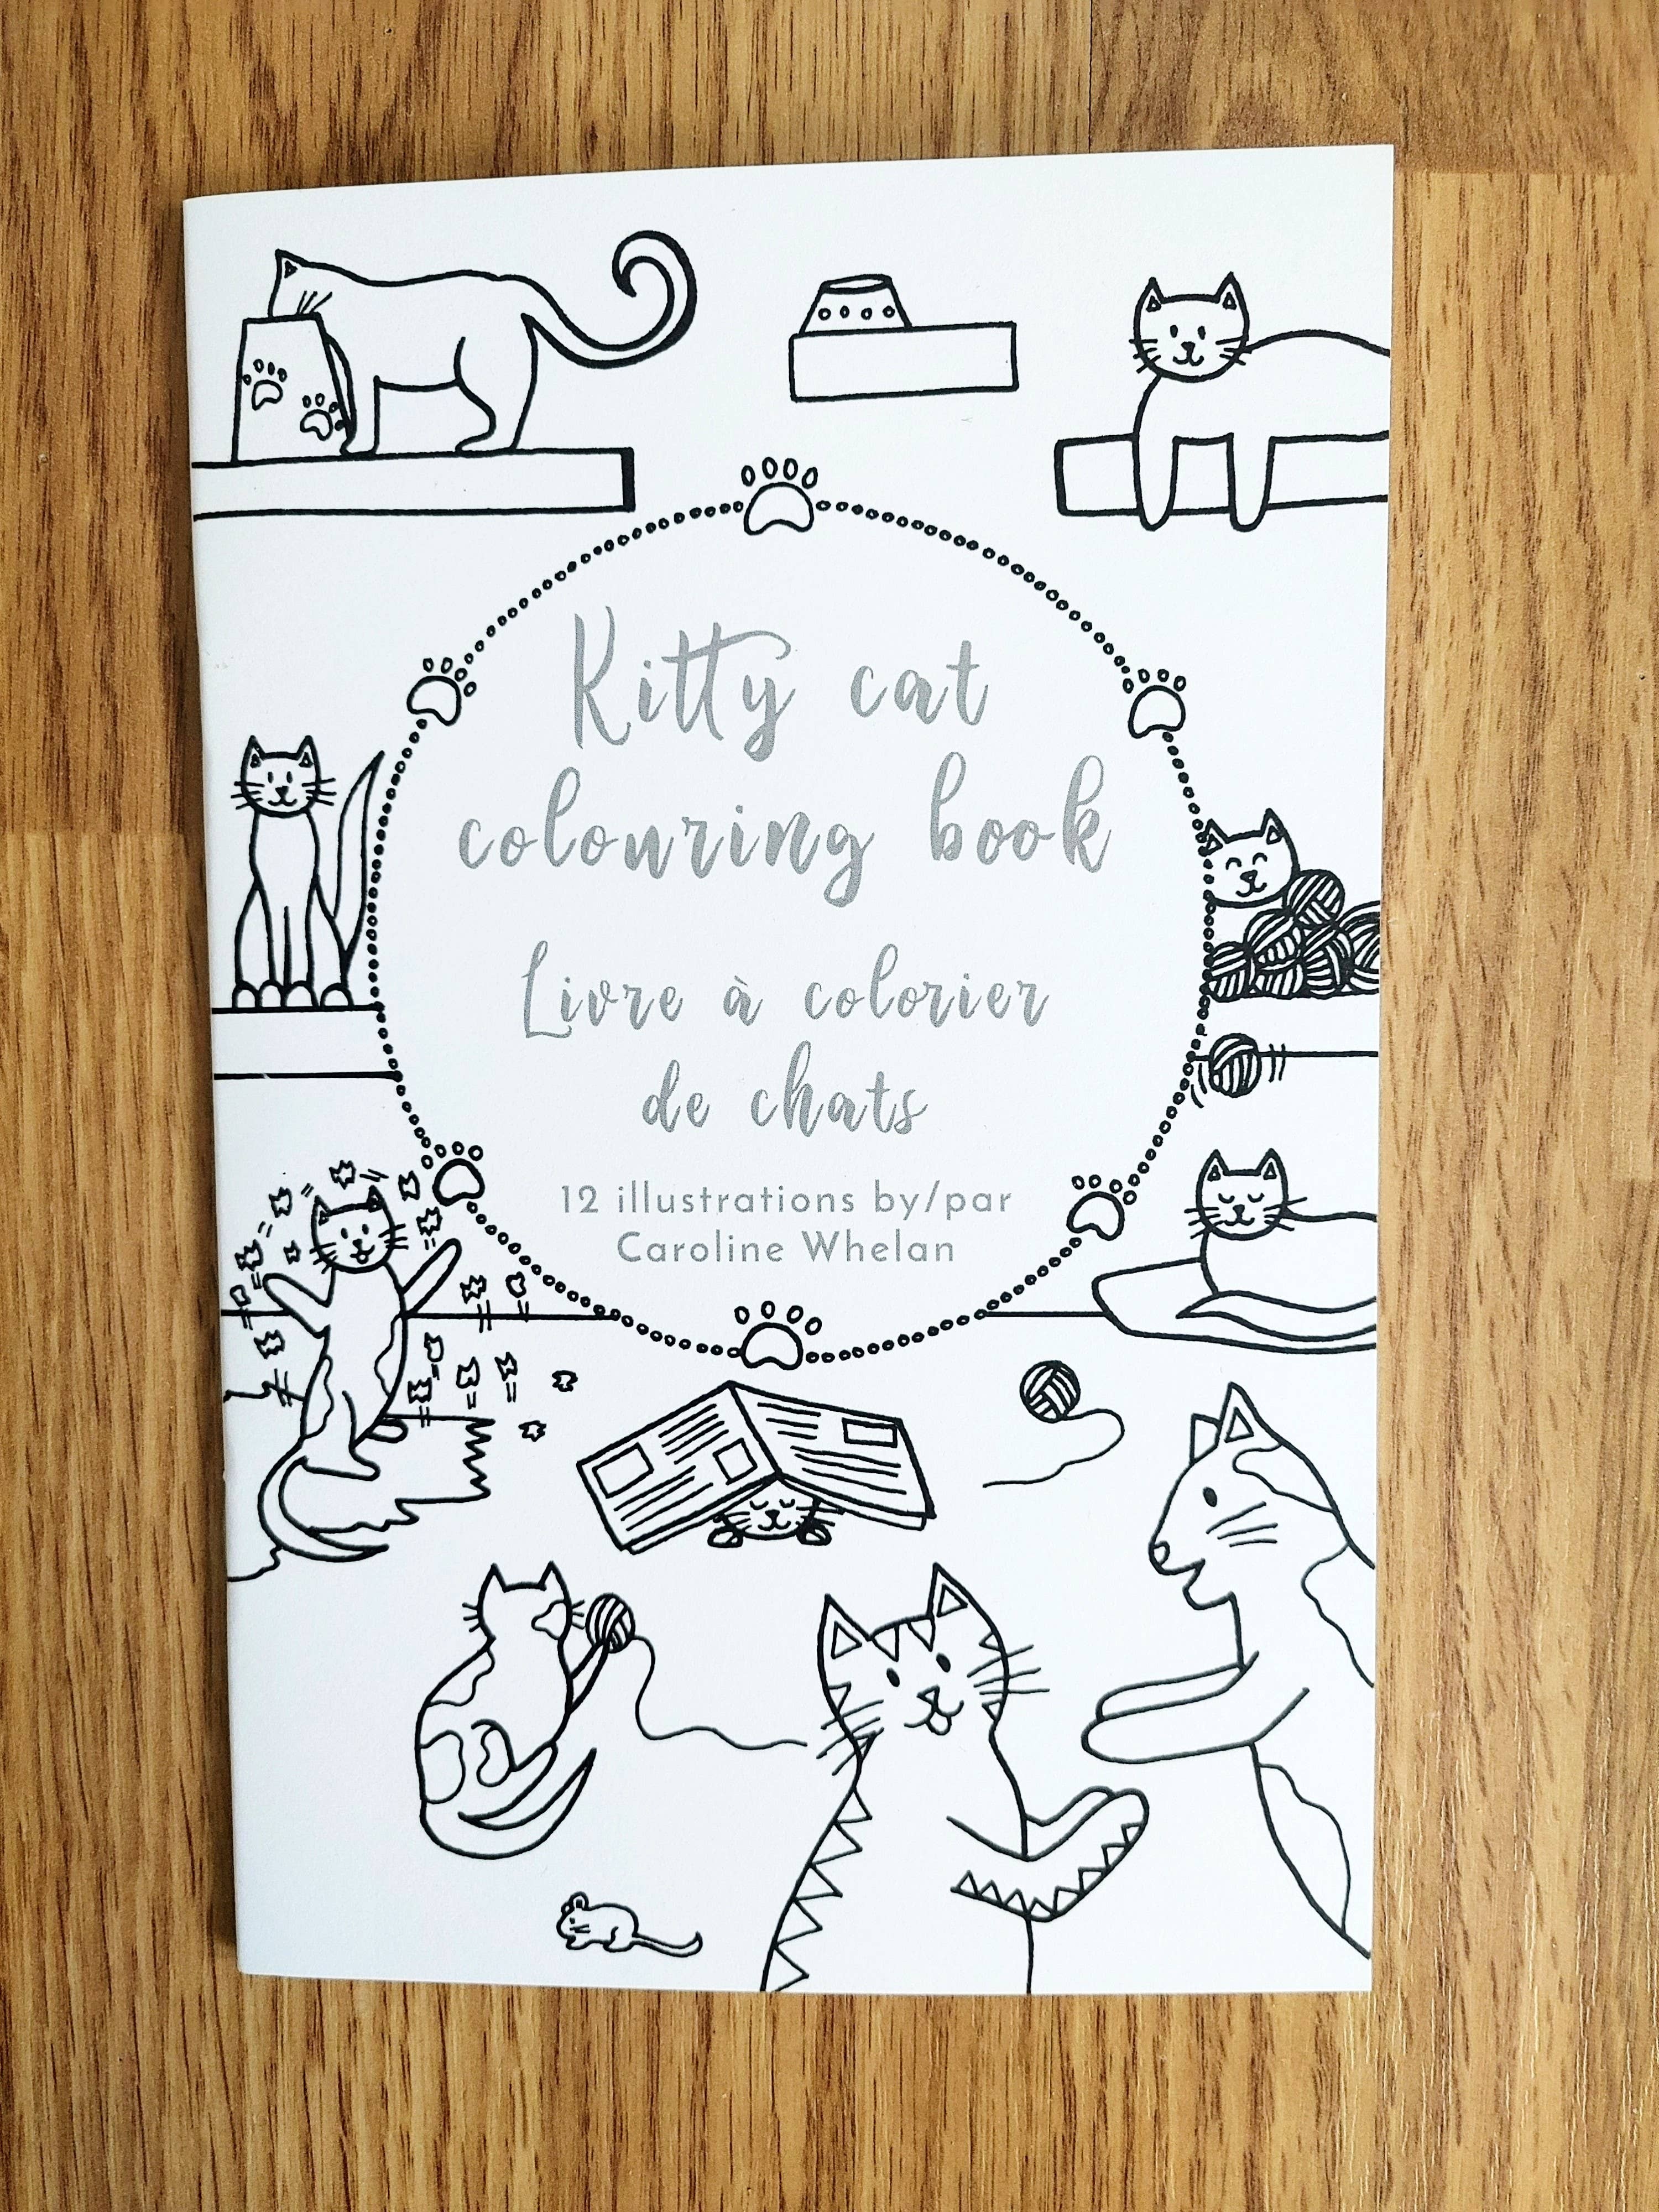 Kitty cat
colouring book
Livre à colorier
de chats
12 illustrations by/par
Caroline Whelan